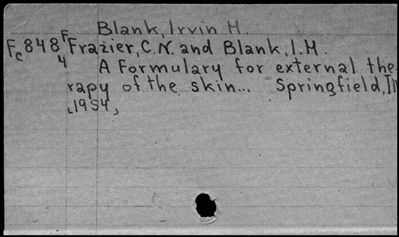 Blank, Irvin H.
Fc848 F Frazier, C.N. and Blank, I.H.
4 A formulary for external the-
rapy of the skin... Springfield, Ill
[1954]